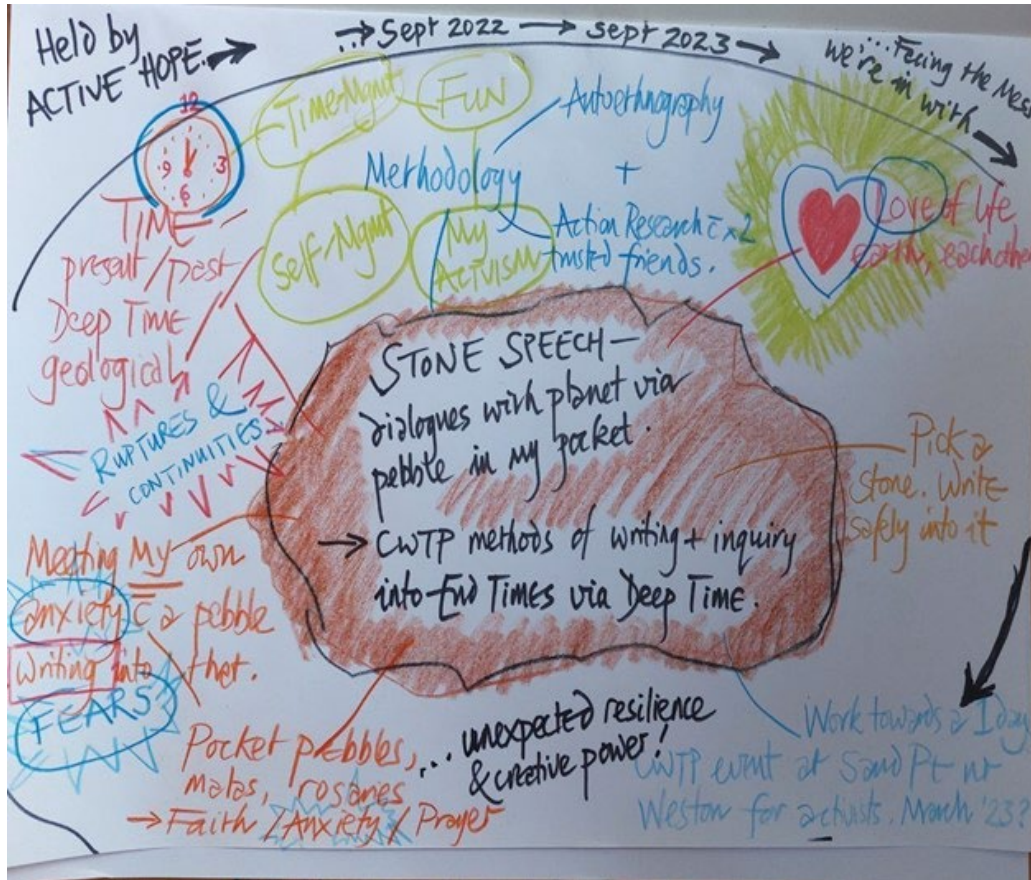 Held by
ACTIVE HOPE.
Sept 2022
Sept 2023
...Facing the Mess
we're in with
12
3
6
9
Time-Mgmt
FUN
Self-Mgmt
My
Activism
Methodology
Autoethnography
+
Action Research c̄ x2
trusted friends.
TIME
present / past
Deep Time
geological
RUPTURES &
CONTINUITIES
Love of life,
earth, eachothe
STONE SPEECH—
dialogues with planet via
pebble in my pocket.
→ CWTP methods of writing + inquiry
into End Times via Deep Time.
Pick a
stone. Write
safely into it
Meeting My own
anxiety c̄ a pebble
writing into that.
FEARS
Pocket pebbles,
malas, rosaries
→ Faith / Anxiety / Prayer
...unexpected resilience
& creative power!
Work towards a 1 day
CWTP event at Sand Pt nr
Weston for activists. March '23?